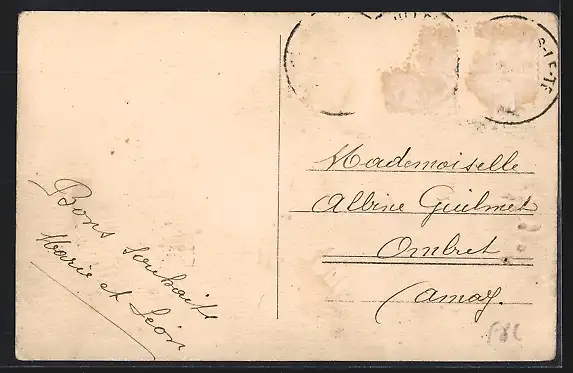 Bons souhaits
Marie et Léon
Mademoiselle
Albine Guilmet
Ombret
Amay.